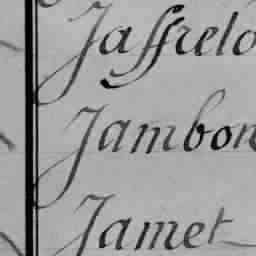 Jaffrelo
Jambon
Jamet